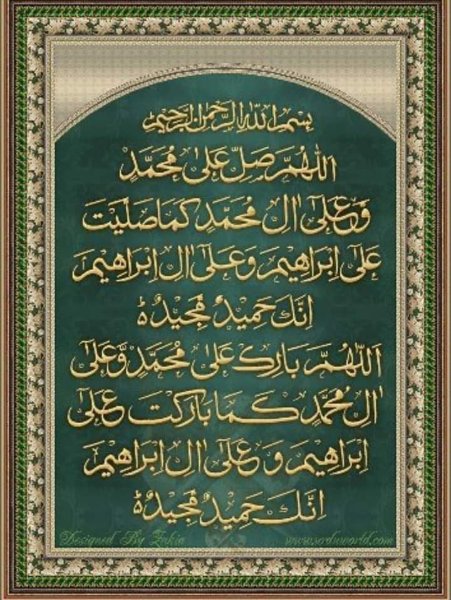 بِسْمِ اللهِ الرَّحْمٰنِ الرَّحِيْمِ
اَللّٰهُمَّ صَلِّ عَلٰى مُحَمَّدٍ
وَّعَلٰٓى اٰلِ مُحَمَّدٍ كَمَا صَلَّيْتَ
عَلٰٓى اِبْرَاهِيْمَ وَعَلٰٓى اٰلِ اِبْرَاهِيْمَ
اِنَّكَ حَمِيْدٌ مَّجِيْدٌ ؕ
اَللّٰهُمَّ بَارِكْ عَلٰى مُحَمَّدٍ وَّعَلٰٓى
اٰلِ مُحَمَّدٍ كَمَا بَارَكْتَ عَلٰٓى
اِبْرَاهِيْمَ وَعَلٰٓى اٰلِ اِبْرَاهِيْمَ
اِنَّكَ حَمِيْدٌ مَّجِيْدٌ ؕ
Designed By Zakia www.urduworld.com